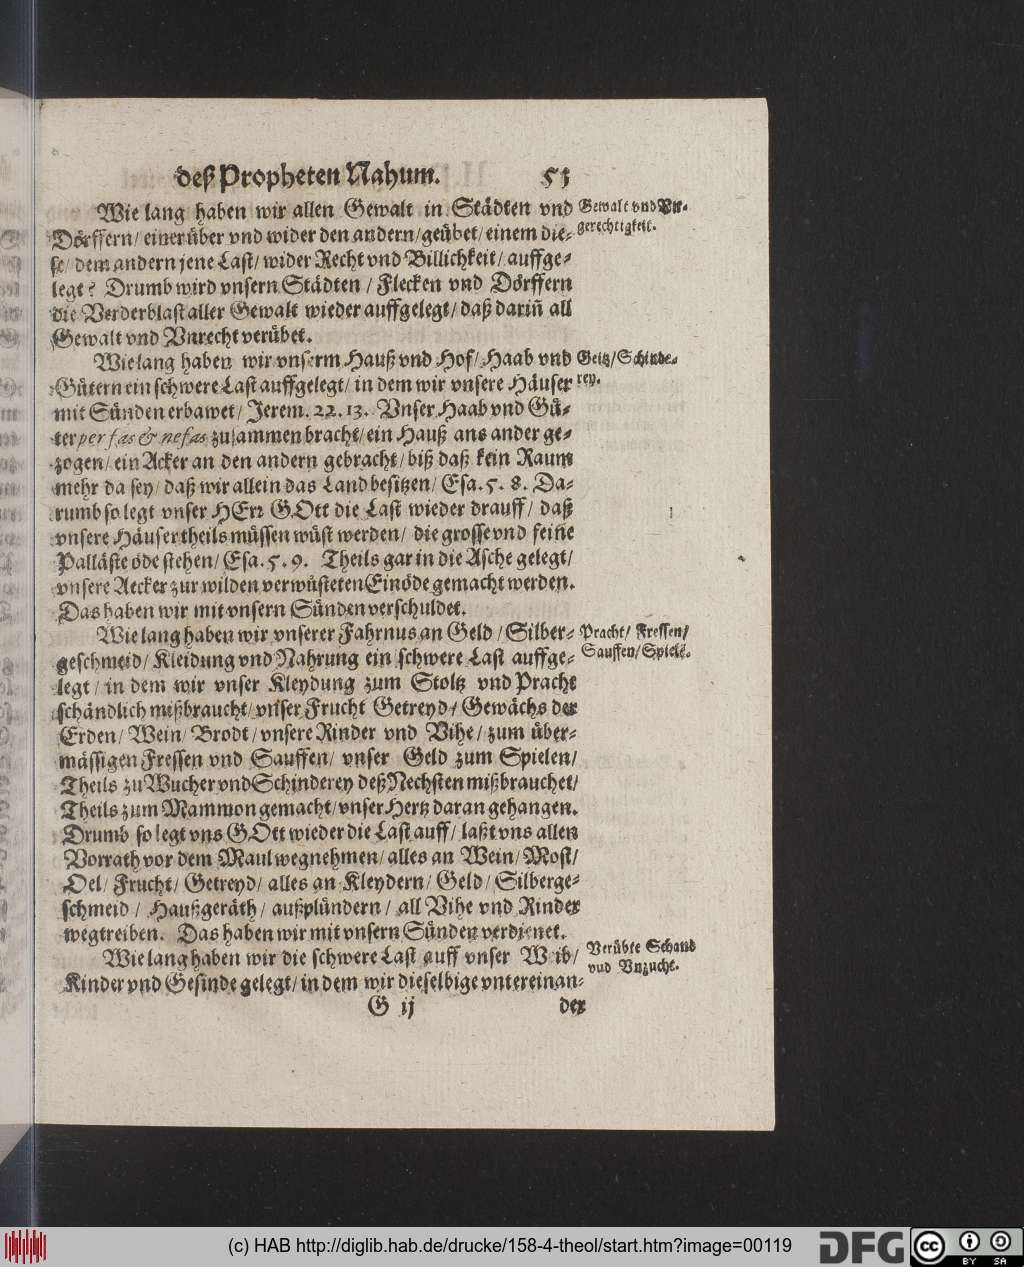 deß Propheten Nahum. 53
Wie lang haben wir allen Gewalt in Städten vnd
Gewalt vnd Vn-
gerechtigkeit.
Dörffern/ einer über vnd wider den andern/ geübet/ einem die-
se/ dem andern jene Last/ wider Recht vnd Billichkeit/ auffge-
legt? Drumb wird vnsern Städten / Flecken vnd Dörffern
die Verderblast aller Gewalt wieder auffgelegt/ daß dariñ all
Gewalt vnd Vnrecht verübet.
Wie lang haben wir vnserm Hauß vnd Hof/ Haab vnd
Geitz/ Schinde-
rey.
Gütern ein schwere Last auffgelegt/ in dem wir vnsere Häuser
mit Sünden erbawet/ Jerem. 22. 13. Vnser Haab vnd Gü-
ter per fas & nefas zusammen bracht/ ein Hauß ans ander ge-
zogen/ ein Acker an den andern gebracht/ biß daß kein Raum
mehr da sey/ daß wir allein das Land besitzen/ Esa. 5. 8. Da-
rumb so legt vnser HErr GOtt die Last wieder drauff/ daß
vnsere Häuser theils müssen wüst werden/ die grosse vnd feine
Palläste öde stehen/ Esa. 5. 9. Theils gar in die Asche gelegt/
vnsere Aecker zur wilden verwüsteten Einöde gemacht werden.
Das haben wir mit vnsern Sünden verschuldet.
Wie lang haben wir vnserer Fahrnus an Geld / Silber-
Pracht/ Fressen/
Sauffen/ Spielē.
geschmeid/ Kleidung vnd Nahrung ein schwere Last auffge-
legt / in dem wir vnser Kleydung zum Stoltz vnd Pracht
schändlich mißbraucht/ vnser Frucht Getreyd/ Gewächs der
Erden/ Wein/ Brodt/ vnsere Rinder vnd Vihe/ zum über-
mässigen Fressen vnd Sauffen/ vnser Geld zum Spielen/
Theils zu Wucher vnd Schinderey deß Nechsten mißbrauchet/
Theils zum Mammon gemacht/ vnser Hertz daran gehangen.
Drumb so legt vns GOtt wieder die Last auff/ laßt vns allen
Vorrath vor dem Maul wegnehmen/ alles an Wein/ Most/
Oel/ Frucht/ Getreyd/ alles an Kleydern/ Geld/ Silberge-
schmeid / Haußgeräth / außplündern / all Vihe vnd Rinder
wegtreiben. Das haben wir mit vnsern Sünden verdienet.
Wie lang haben wir die schwere Last auff vnser Weib/
Verübte Schand
vnd Vnzucht.
Kinder vnd Gesinde gelegt/ in dem wir dieselbige vntereinan-
G ij der
(c) HAB http://diglib.hab.de/drucke/158-4-theol/start.htm?image=00119
DFG
cc BY SA